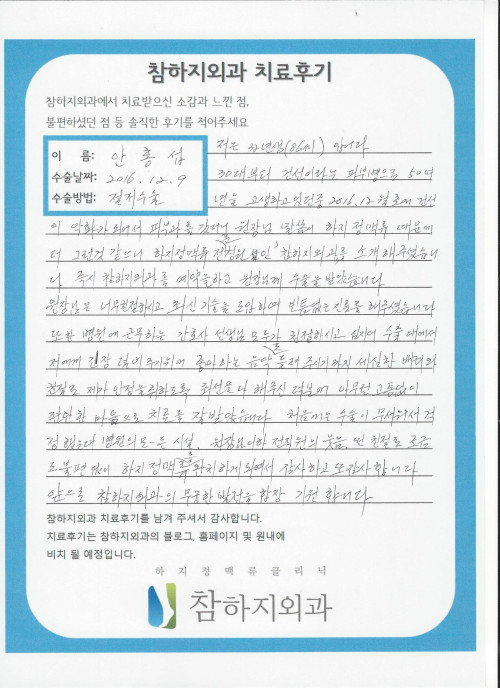 참하지외과 치료후기
참하지외과에서 치료받으신 소감과 느낀 점,
불편하셨던 점 등 솔직한 후기를 적어주세요
이 름: 안홍섭
수술날짜: 2016.12.9
수술방법: 절제수술
저는 32년생(86세) 입니다
30대부터 건선이라는 피부병으로 50여
년을 고생하고 있던중 2016.12월초에 건선
이 악화가 되어서 피부과를 갔더니 원장님 말씀이 하지정맥류 때문에
더 그런것 같으니 하지정맥류 전문병원인 참하지외과를 소개해주셨습니
다. 즉시 참하지외과를 예약을하고 원장님께 수술을 받았습니다
원장님은 너무친절하시고 최신 기술을 도입하여 빈틈없는 진료를 해주셨습니다
또한 병원에 근무하는 간호사 선생님 모두가 친절하시고 심지어 수술대에서
저에게 긴장 덜어주기위해 좋아하는 음악을 틀어 주시기까지 세심한 배려와
친절로 제가 안정을취하도록 최선을 다해주신 덕분에 아무런 고통없이
편안한 마음으로 치료를 잘받았습니다 처음에는 수술이 무서워서 걱
정했는데 병원의 모든 시설, 원장님이하 전직원의 웃음 띤 친절로 조금
도불편 없이 하지정맥류 완치하게되어서 감사하고 또감사합니다
앞으로 참하지외과의 무궁한 발전을 합장 기원 합니다
참하지외과 치료후기를 남겨 주셔서 감사합니다.
치료후기는 참하지외과의 블로그, 홈페이지 및 원내에
비치 될 예정입니다.
하지정맥류클리닉
참하지외과